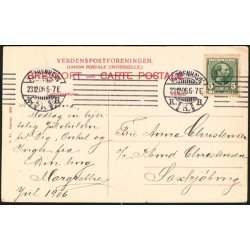 VERDENSPOSTFORENINGEN.
(UNION POSTALE UNIVERSELLE.)
BREVKORT — CARTE POSTALE
KJØBENHAVN
23.12.06.6-7E
K.
KJØBENHAVN
23.12.06.6-7E
K.
Modtag en hjer-
telig Julehilsen
Onkel og
Yngli fra
Din ling
Margrethe
Jul 1906
Fru Anna Christensen
Christensen
Saxkjøbing